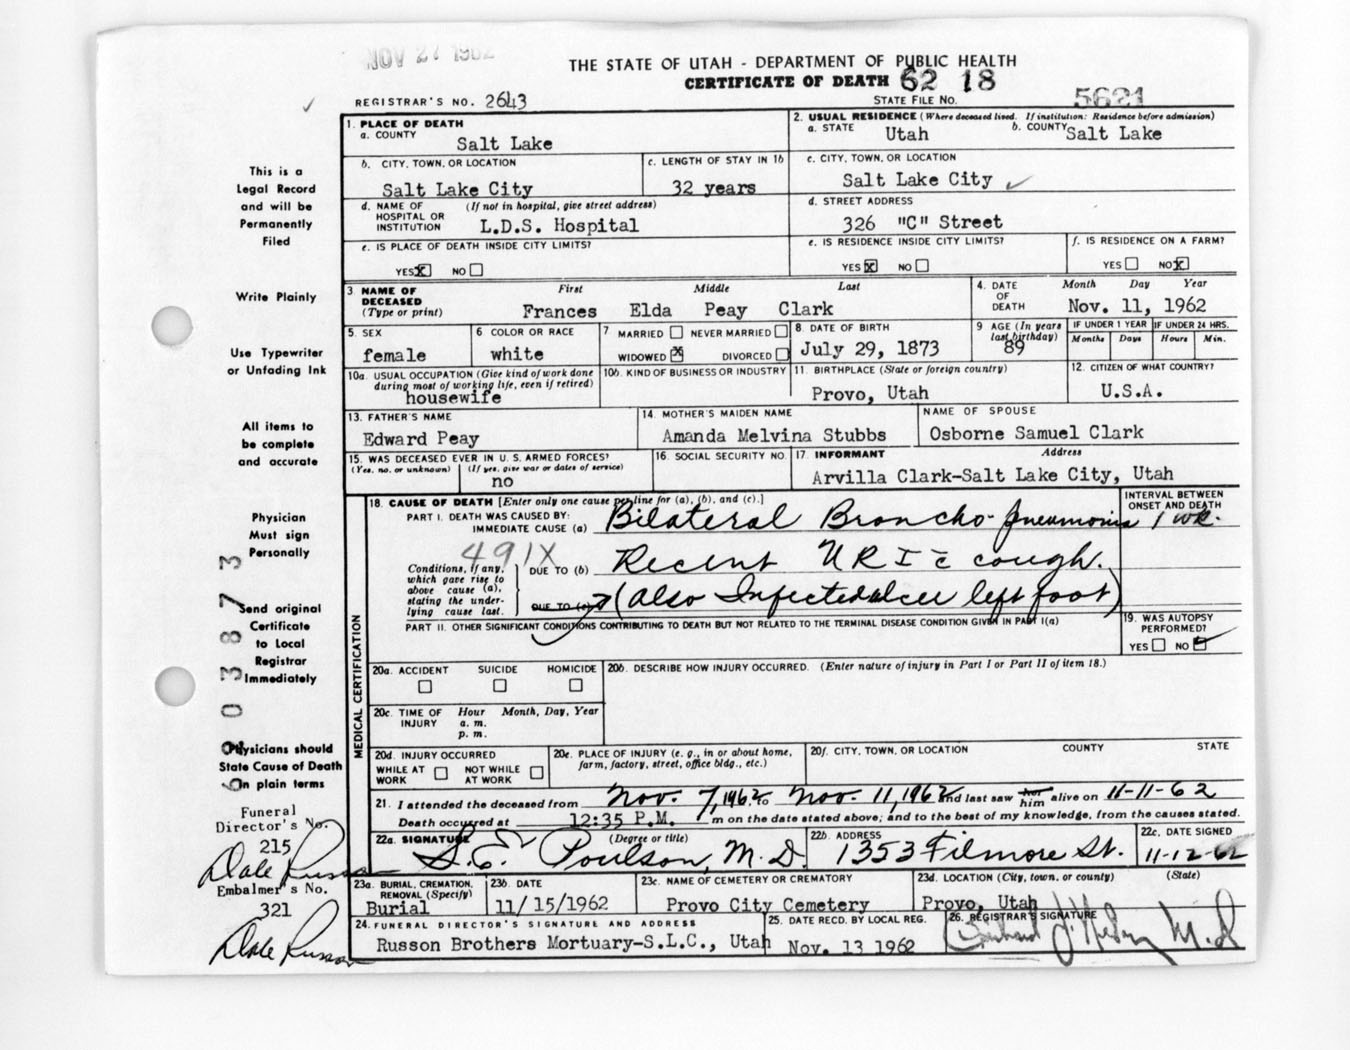 NOV 27 1962
THE STATE OF UTAH - DEPARTMENT OF PUBLIC HEALTH
CERTIFICATE OF DEATH 62 18
REGISTRAR'S NO. 2643
STATE FILE NO. 5621
1. PLACE OF DEATH
a. COUNTY
Salt Lake
2. USUAL RESIDENCE (Where deceased lived. If institution: Residence before admission)
a. STATE Utah b. COUNTY Salt Lake
b. CITY, TOWN, OR LOCATION
Salt Lake City
c. LENGTH OF STAY IN 1b
32 years
c. CITY, TOWN, OR LOCATION
Salt Lake City
d. NAME OF (If not in hospital, give street address)
HOSPITAL OR
INSTITUTION L.D.S. Hospital
d. STREET ADDRESS
326 "C" Street
e. IS PLACE OF DEATH INSIDE CITY LIMITS?
YES X NO
e. IS RESIDENCE INSIDE CITY LIMITS?
YES X NO
f. IS RESIDENCE ON A FARM?
YES NO X
3. NAME OF
DECEASED
(Type or print)
First Middle Last
Frances Elda Peay Clark
4. DATE
OF
DEATH
Month Day Year
Nov. 11, 1962
5. SEX
female
6. COLOR OR RACE
white
7 MARRIED NEVER MARRIED
WIDOWED X DIVORCED
8. DATE OF BIRTH
July 29, 1873
9 AGE (In years
last birthday)
89
IF UNDER 1 YEAR IF UNDER 24 HRS.
Months Days Hours Min.
10a. USUAL OCCUPATION (Give kind of work done
during most of working life, even if retired)
housewife
10b. KIND OF BUSINESS OR INDUSTRY
11. BIRTHPLACE (State or foreign country)
Provo, Utah
12. CITIZEN OF WHAT COUNTRY?
U.S.A.
13. FATHER'S NAME
Edward Peay
14. MOTHER'S MAIDEN NAME
Amanda Melvina Stubbs
NAME OF SPOUSE
Osborne Samuel Clark
15. WAS DECEASED EVER IN U. S. ARMED FORCES?
(Yes, no, or unknown) (If yes, give war or dates of service)
no
16. SOCIAL SECURITY NO.
17. INFORMANT Address
Arvilla Clark-Salt Lake City, Utah
18. CAUSE OF DEATH [Enter only one cause per line for (a), (b), and (c).]
INTERVAL BETWEEN
ONSET AND DEATH
PART I. DEATH WAS CAUSED BY:
IMMEDIATE CAUSE (a) Bilateral Broncho-pneumonia 1 wk.
491X
Conditions, if any,
which gave rise to
above cause (a),
stating the under-
lying cause last.
DUE TO (b) Recent URI c cough.
DUE TO (c) (also Infected ulcer left foot)
PART II. OTHER SIGNIFICANT CONDITIONS CONTRIBUTING TO DEATH BUT NOT RELATED TO THE TERMINAL DISEASE CONDITION GIVEN IN PART I(a)
19. WAS AUTOPSY
PERFORMED?
YES NO
20a. ACCIDENT SUICIDE HOMICIDE
20b. DESCRIBE HOW INJURY OCCURRED. (Enter nature of injury in Part I or Part II of item 18.)
20c. TIME OF Hour Month, Day, Year
INJURY a. m.
p. m.
20d. INJURY OCCURRED
WHILE AT NOT WHILE
WORK AT WORK
20e. PLACE OF INJURY (e. g., in or about home,
farm, factory, street, office bldg., etc.)
20f. CITY, TOWN, OR LOCATION COUNTY STATE
MEDICAL CERTIFICATION
21. I attended the deceased from Nov. 7, 1962 to Nov. 11, 1962 and last saw her him alive on 11-11-62
Death occurred at 12:35 P.M. m on the date stated above; and to the best of my knowledge, from the causes stated.
22a. SIGNATURE (Degree or title)
S.E. Poulson, M.D.
22b. ADDRESS
1353 Filmore St.
22c. DATE SIGNED
11-12-62
23a. BURIAL, CREMATION,
REMOVAL (Specify)
Burial
23b. DATE
11/15/1962
23c. NAME OF CEMETERY OR CREMATORY
Provo City Cemetery
23d. LOCATION (City, town, or county) (State)
Provo, Utah
24. FUNERAL DIRECTOR'S SIGNATURE AND ADDRESS
Russon Brothers Mortuary-S.L.C., Utah
25. DATE RECD. BY LOCAL REG.
Nov. 13 1962
26. REGISTRAR'S SIGNATURE
M.D
This is a
Legal Record
and will be
Permanently
Filed
Write Plainly
Use Typewriter
or Unfading Ink
All items to
be complete
and accurate
Physician
Must sign
Personally
Send original
Certificate
to Local
Registrar
Immediately
Physicians should
State Cause of Death
in plain terms
Funeral
Director's No.
215
Dale Russon
Embalmer's No.
321
Dale Russon